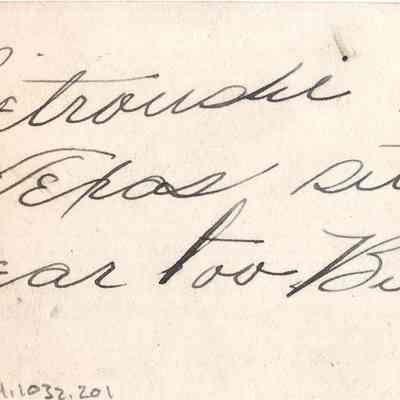 etrouski
Texas, sit
ear too Bu
1.1032.201